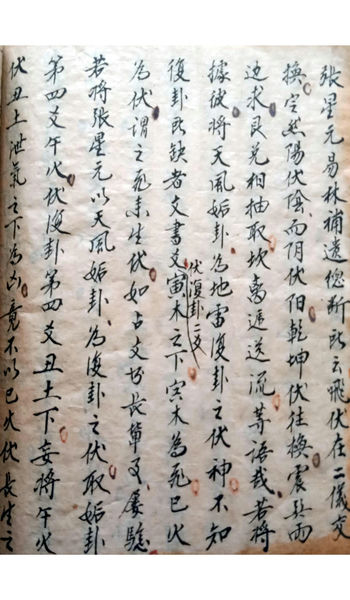 張星元易林補遺總斷所云飛伏在二儀交
換定然陽伏陰而阴伏阳乾坤伏往換震巽兩
边求艮兑相抽取坎离遞送流等語哉若將
據彼將天風姤卦為地雷復卦之伏神不知
伏復卦二爻
復卦所缺者文書爻寅木之下寅木為死巳火
為伏謂之死未生伏如占文书長輩爻屡驗
若將張星元以天風姤卦為復卦之伏取姤卦
第四爻午火伏復卦第四爻丑土下妄將午火
伏丑土泄氣之下為凶竟不以巳火伏長生之